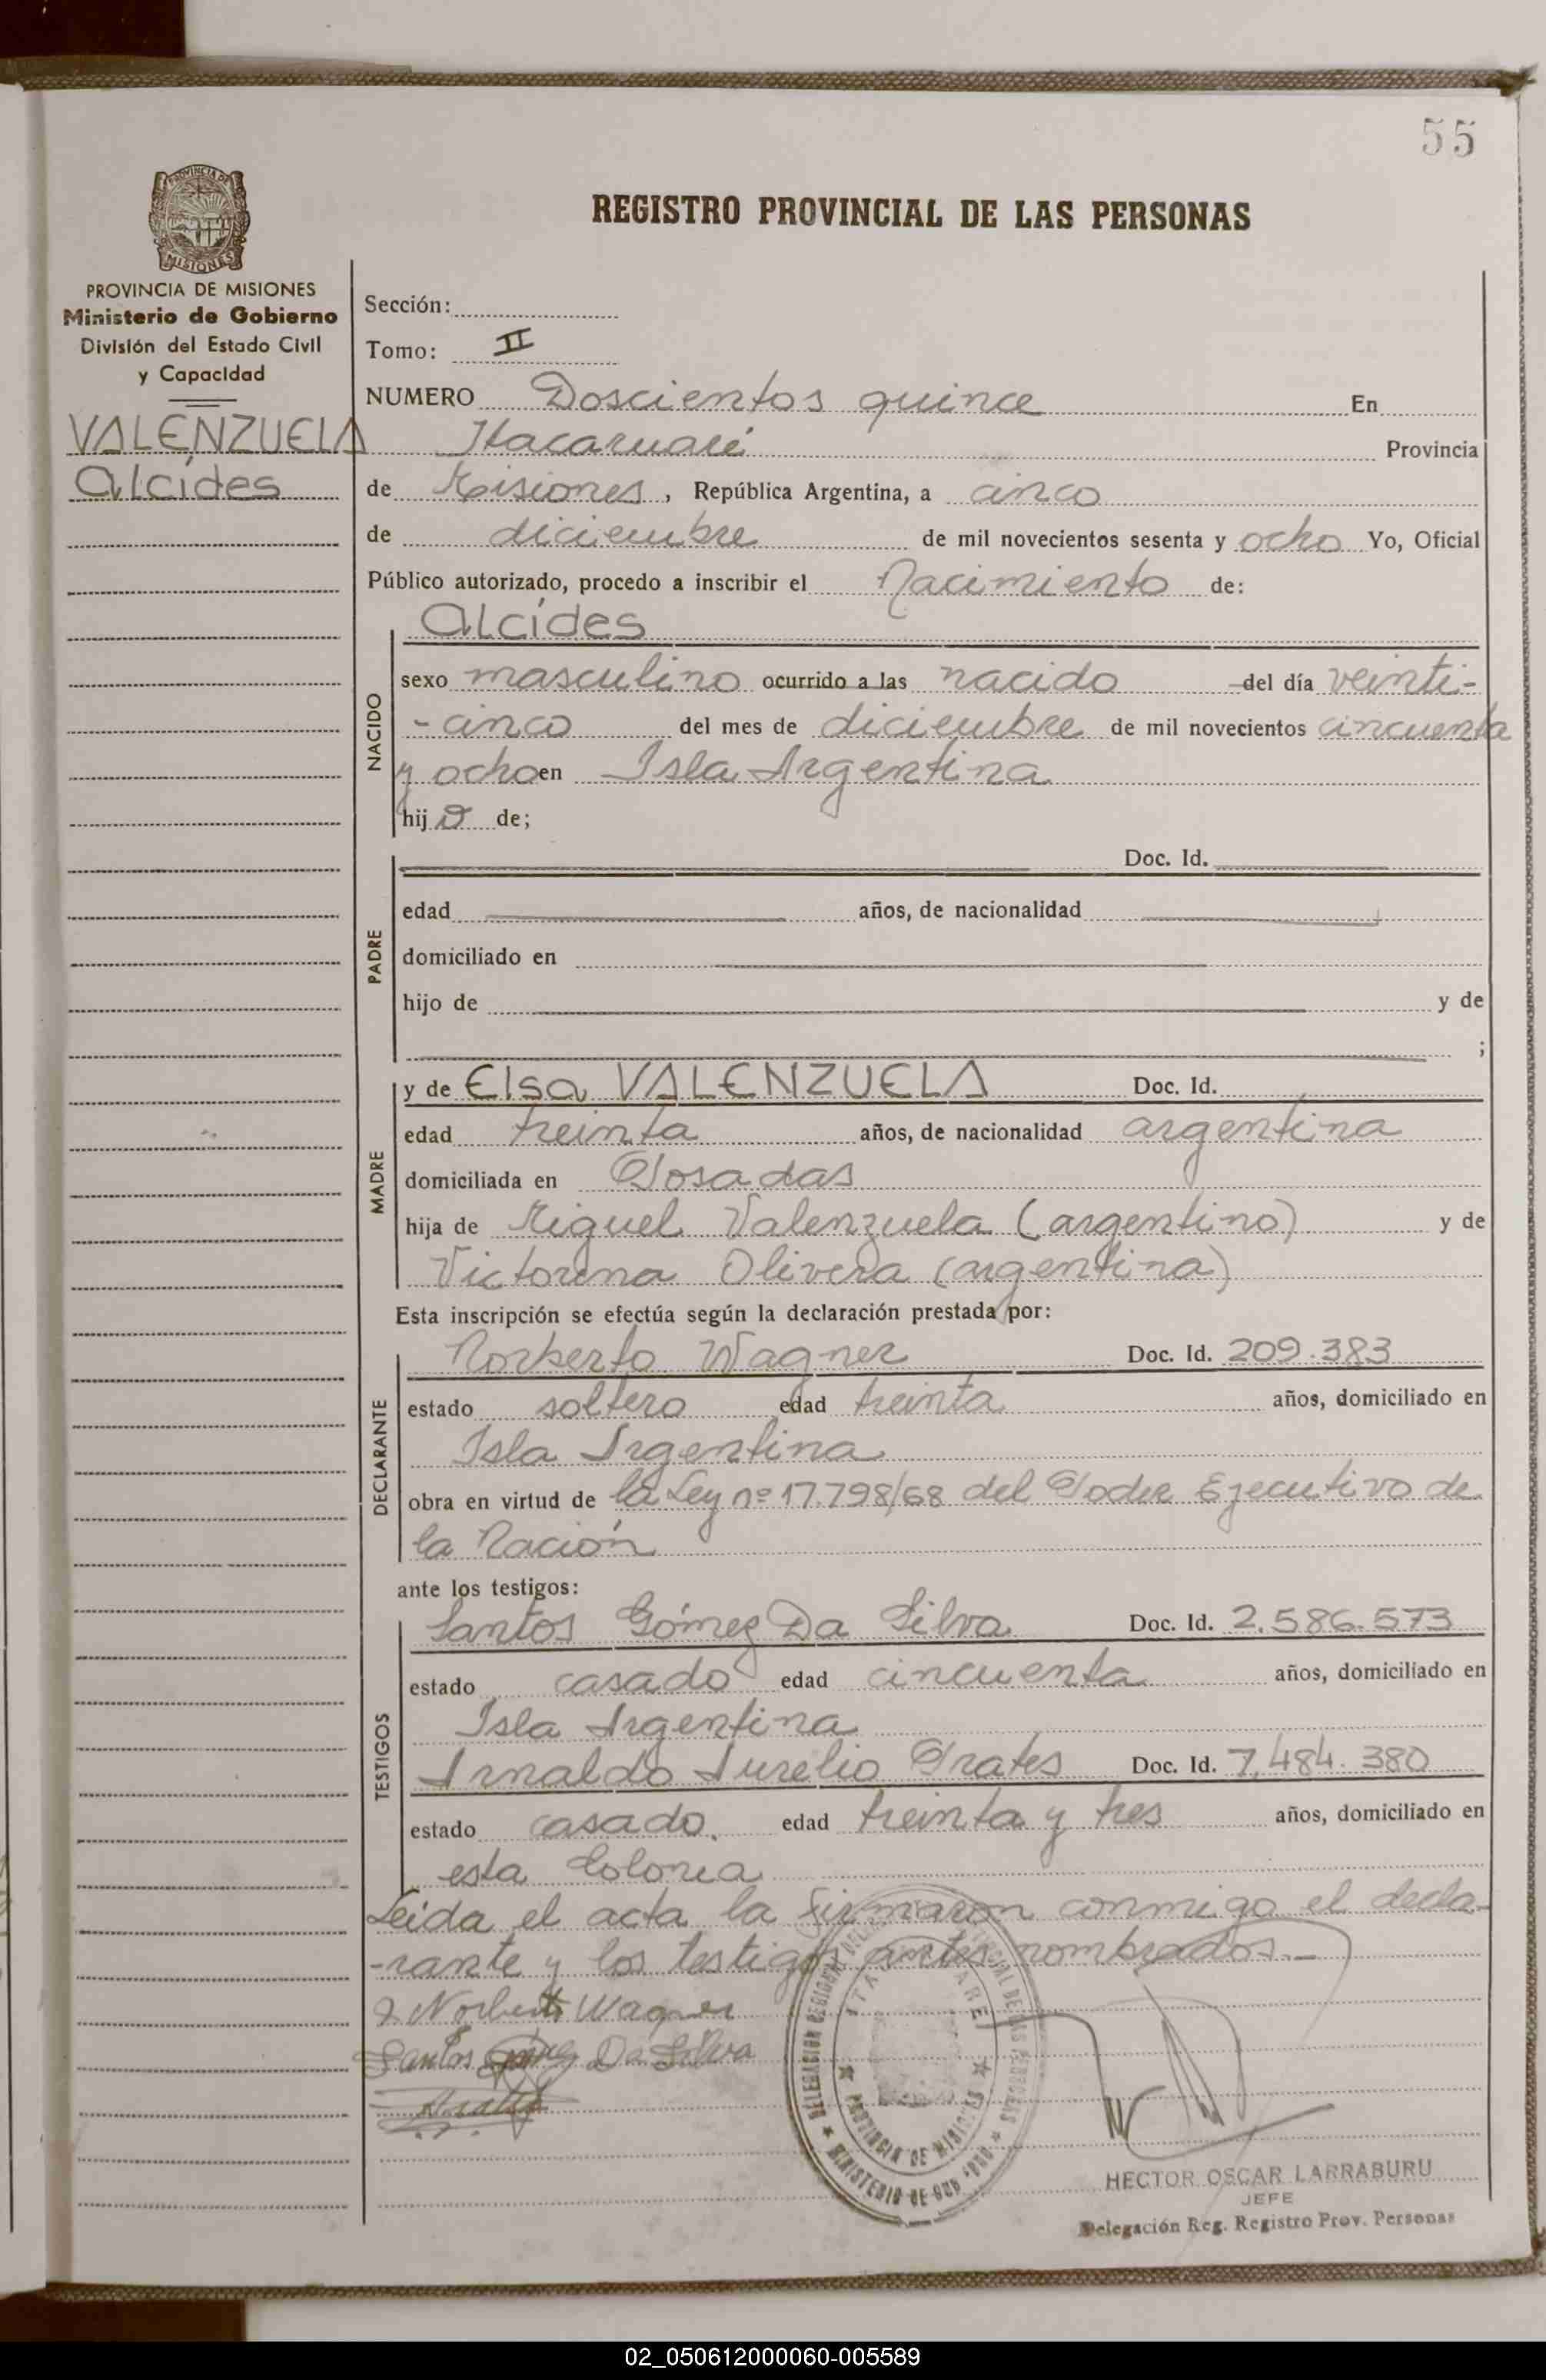 55
PROVINCIA DE
MISIONES
REGISTRO PROVINCIAL DE LAS PERSONAS
PROVINCIA DE MISIONES
Ministerio de Gobierno
División del Estado Civil
y Capacidad
VALENZUELA
Alcídes
Sección:
Tomo: II
NUMERO Doscientos quince En
Itacaruaré Provincia
de Misiones, República Argentina, a cinco
de diciembre de mil novecientos sesenta y ocho Yo, Oficial
Público autorizado, procedo a inscribir el Nacimiento de:
NACIDO
Alcídes
sexo masculino ocurrido a las nacido del día veinti-
-cinco del mes de diciembre de mil novecientos cincuenta
y ocho en Isla Argentina
hijo de;
PADRE
Doc. Id.
edad años, de nacionalidad
domiciliado en
hijo de y de
;
MADRE
y de Elsa VALENZUELA Doc. Id.
edad treinta años, de nacionalidad argentina
domiciliada en Posadas
hija de Miguel Valenzuela (argentino) y de
Victorina Olivera (argentina)
Esta inscripción se efectúa según la declaración prestada por:
DECLARANTE
Norberto Wagner Doc. Id. 209.383
estado soltero edad treinta años, domiciliado en
Isla Argentina
obra en virtud de la Ley nº 17.798/68 del Poder Ejecutivo de
la Nación
ante los testigos:
TESTIGOS
Santos Gómez Da Silva Doc. Id. 2.586.573
estado casado edad cincuenta años, domiciliado en
Isla Argentina
Arnaldo Aurelio Prates Doc. Id. 7.484.380
estado casado. edad treinta y tres años, domiciliado en
esta Colonia
Leída el acta la firmaron conmigo el decla-
-rante y los testigos antes nombrados.-
Norberto Wagner
Santos Gómez Da Silva
PROVINCIA DE MISIONES
HECTOR OSCAR LARRABURU
JEFE
Delegación Reg. Registro Prov. Personas
02_050612000060-005589